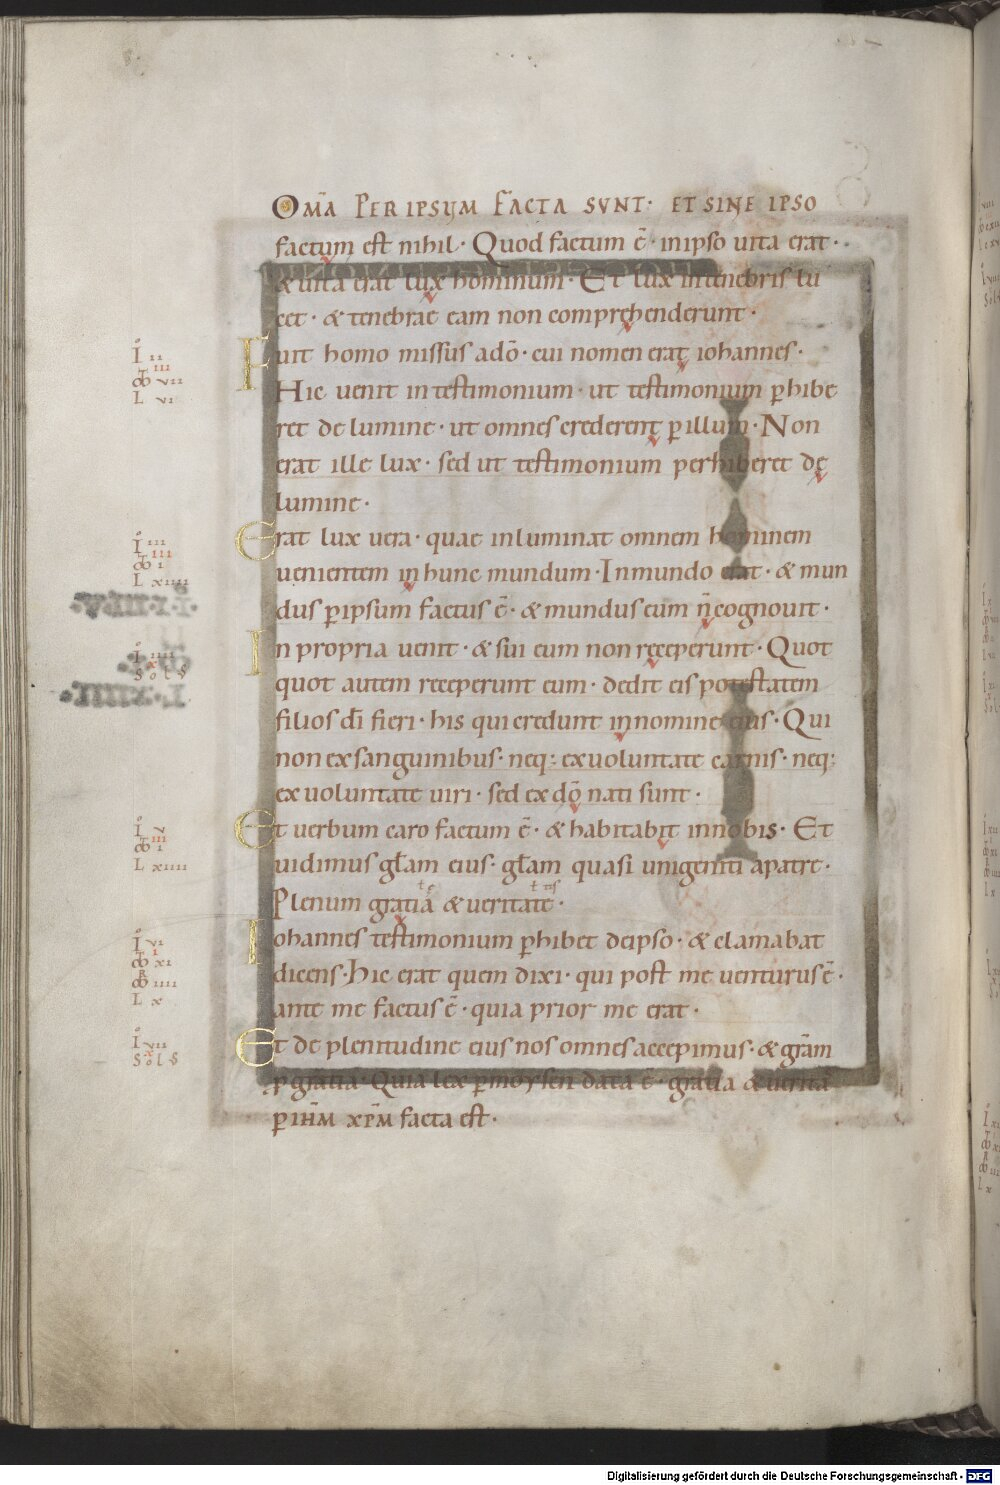 Om̄a Per ipsum f̄acta sunt· et sine ipso
factum est nihil· Quod factum ē· in ipso uita erat·
& uita erat lux hominum· Et lux in tenebris lu
cet· & tenebrae eam non comprehenderunt·
Fuit homo missus a dō· cui nomen erat iohannes·
Hic uenit in testimonium· ut testimonium ꝑhibe
ret de lumine· ut omnes crederent ꝑ illum· Non
erat ille lux· sed ut testimonium perhiberet de
lumine·
Erat lux uera· quae inluminat omnem hominem
uenientem in hunc mundum· In mundo erat· & mun
dus ꝑ ipsum factus ē· & mundus eum n̄ cognouit·
In propria uenit· & sui eum non receperunt· Quot
quot autem receperunt eum· dedit eis potestatem
filios dī fieri· his qui credunt in nomine eius· Qui
non ex sanguinibus· neq: ex uoluntate carnis· neq:
ex uoluntate uiri· sed ex dō nati sunt·
Et uerbum caro factum ē· & habitabit in nobis· Et
uidimus gl̄am eius· gl̄am quasi unigeniti a patre·
Plenum gratia & ueritate·
Iohannes testimonium ꝑhibet de ipso· & clamabat
dicens· Hic erat quem dixi· qui post me uenturus ē·
ante me factus ē· quia prior me erat·
Et de plenitudine eius nos omnes accepimus· & gr̄am
ꝓ gratia· Quia lex ꝑ moysen data ē· gratia & uerita
ꝑ ihm̄ xpm̄ facta est·
I II
III
VII
L VI
I III
III
I
L XIIII
I IIII
X
Sol S
I V
III
I
L XIIII
I VI
I
XI
IIII
L X
I VII
X
Sol S
Digitalisierung gefördert durch die Deutsche Forschungsgemeinschaft - DFG